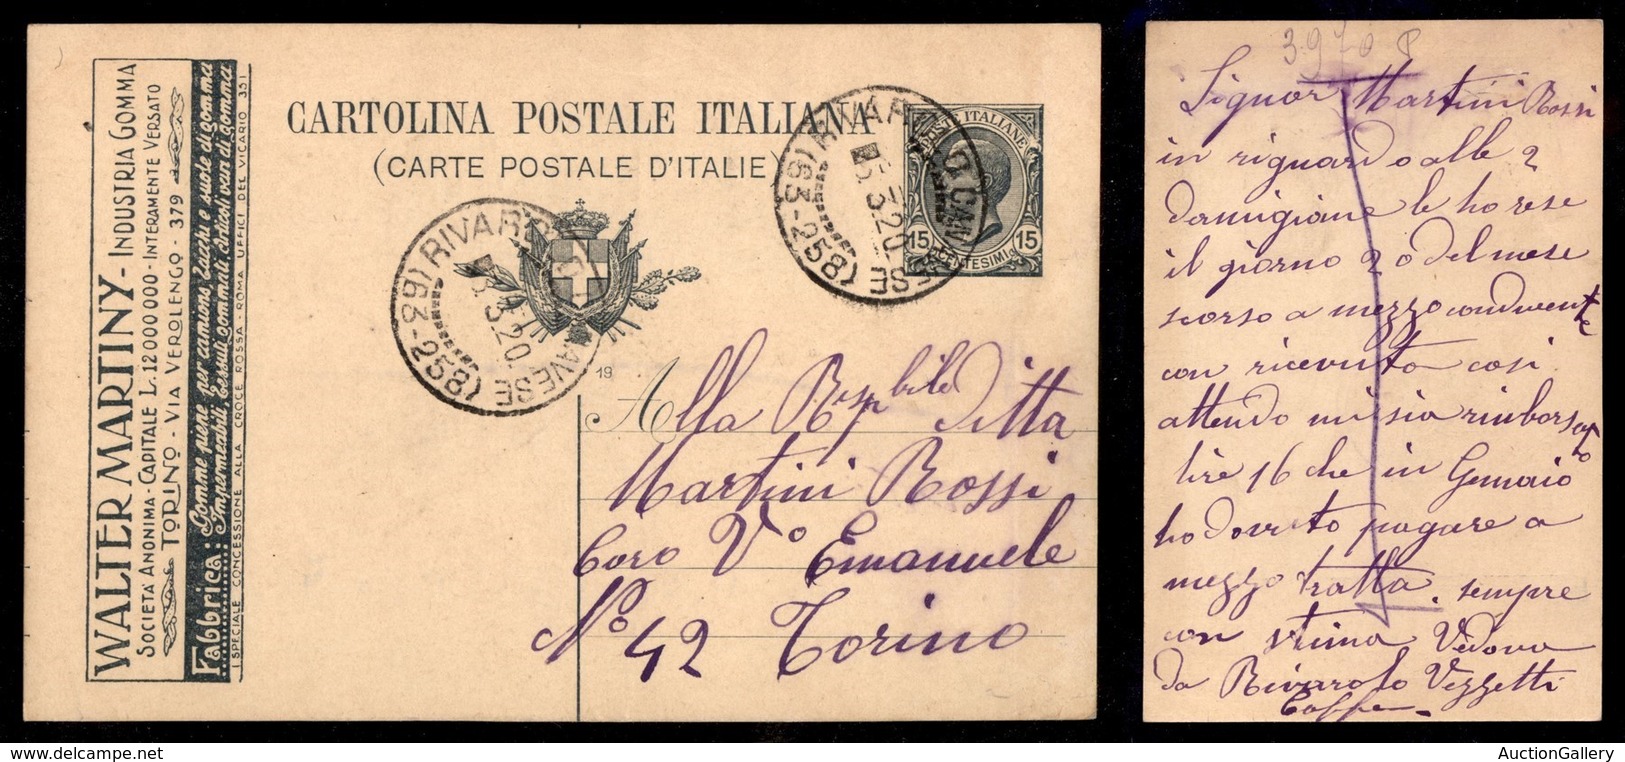 WALTER MARTINY - INDUSTRIA GOMMA
SOCIETA' ANONIMA - CAPITALE L. 12000000 - INTERAMENTE VERSATO
TORINO - VIA VEROLENGO - 379
Fabbrica: Gomme piene per camions, Tacchi e suole di gomma
Impermeabili, Tessuti gommati, Articoli vari di gomma
I SPECIALE CONCESSIONE ALLA CROCE ROSSA - ROMA UFFICI DEL VICARIO 351
CARTOLINA POSTALE ITALIANA
(CARTE POSTALE D'ITALIE)
POSTE ITALIANE
15 15
CENTESIMI
RIVAROLO CANAVESE
(63-258)
5.3.20
RIVAROLO CANAVESE
(63-258)
5.3.20
19
Alla Rispbile Ditta
Martini Rossi
Corso Vo Emanuele
No 42 Torino
3970
Signor Martini Rossi
in riguardo alle 2
damigiane le ho rese
il giorno 20 del mese
scorso a mezzo conducente
con ricevuta così
attendo mi sia rimborsato
lire 16 che in Gennaio
ho dovuto pagare a
mezzo tratta. sempre
con stima Vedova
da Rivarolo Vezzetti
AuctionGallery